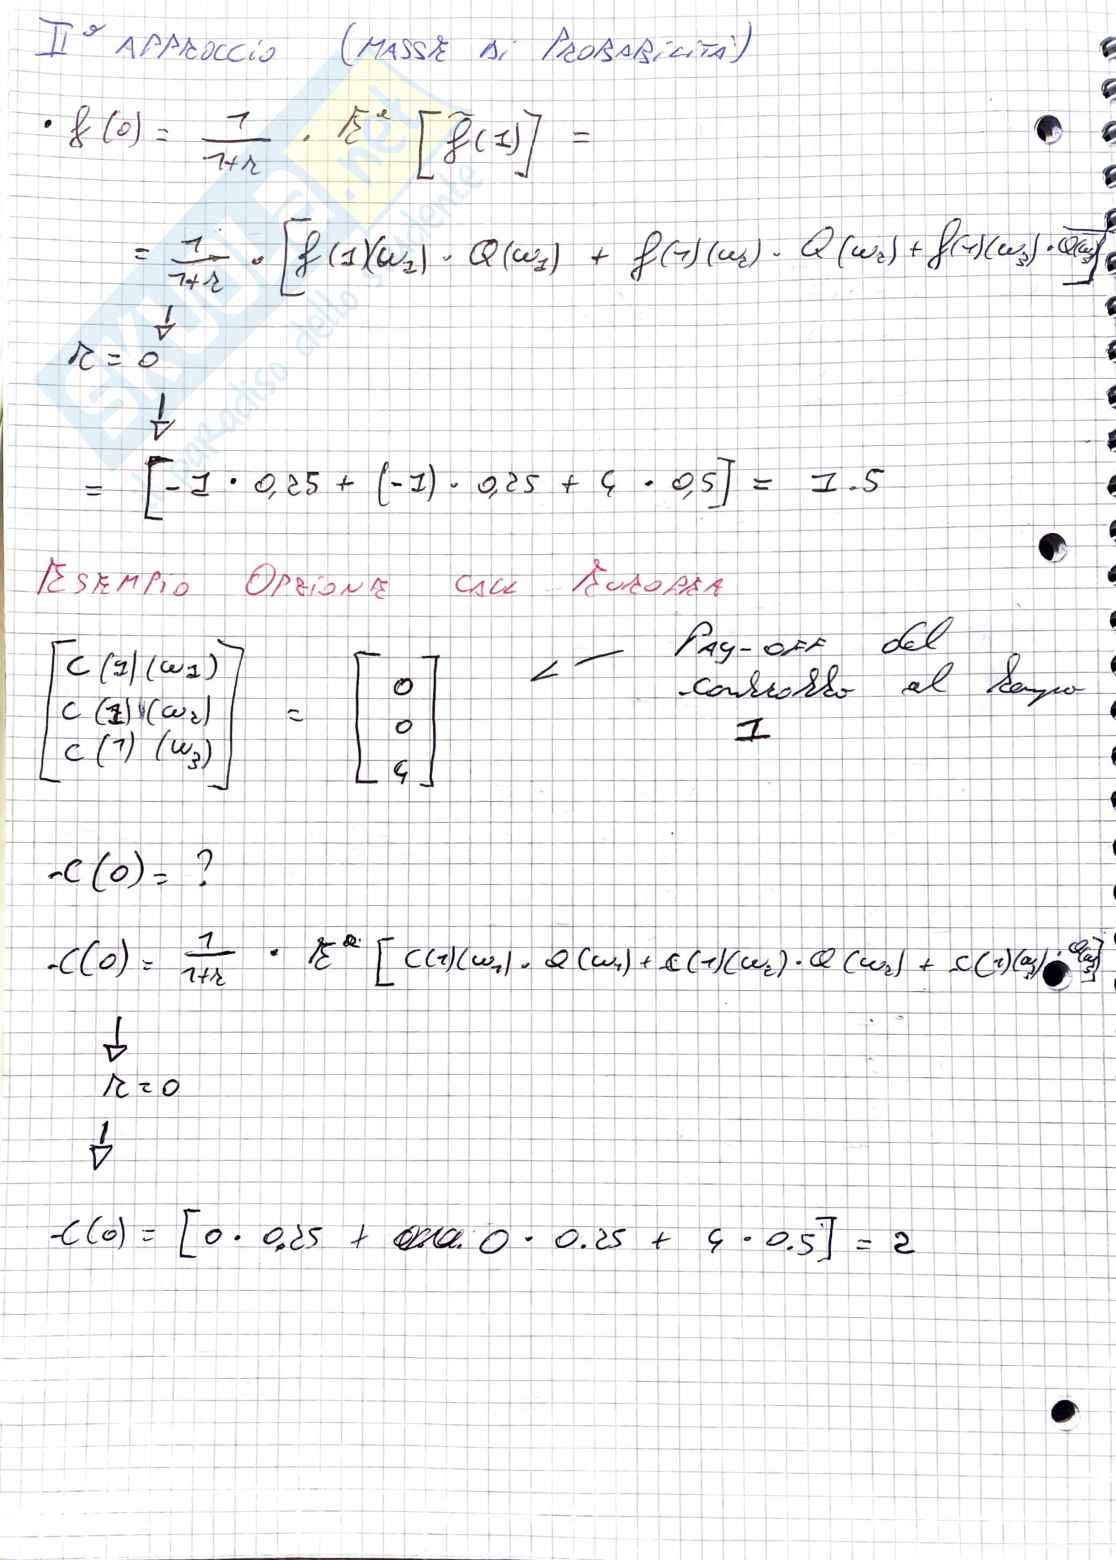 IIº APPROCCIO (MASSE DI PROBABILITÀ)
• f(0) = 1/(1+r) · E^Q [f̃(1)] =
= 1/(1+r) · [f(1)(ω1) · Q(ω1) + f(1)(ω2) · Q(ω2) + f(1)(ω3) · Q(ω3)]
↓
r = 0
↓
= [-1 · 0,25 + (-1) · 0,25 + 4 · 0,5] = 1.5
ESEMPIO OPZIONE CALL EUROPEA
[C(1)(ω1) C(1)(ω2) C(1)(ω3)] = [0 0 4] ← PAY-OFF del
contratto al tempo
1
C(0) = ?
C(0) = 1/(1+r) · E^Q [C(1)(ω1) · Q(ω1) + C(1)(ω2) · Q(ω2) + C(1)(ω3) · Q(ω3)]
↓
r = 0
↓
C(0) = [0 · 0,25 + 0 · 0.25 + 4 · 0.5] = 2
SKUOLA.net
il paradiso dello studente